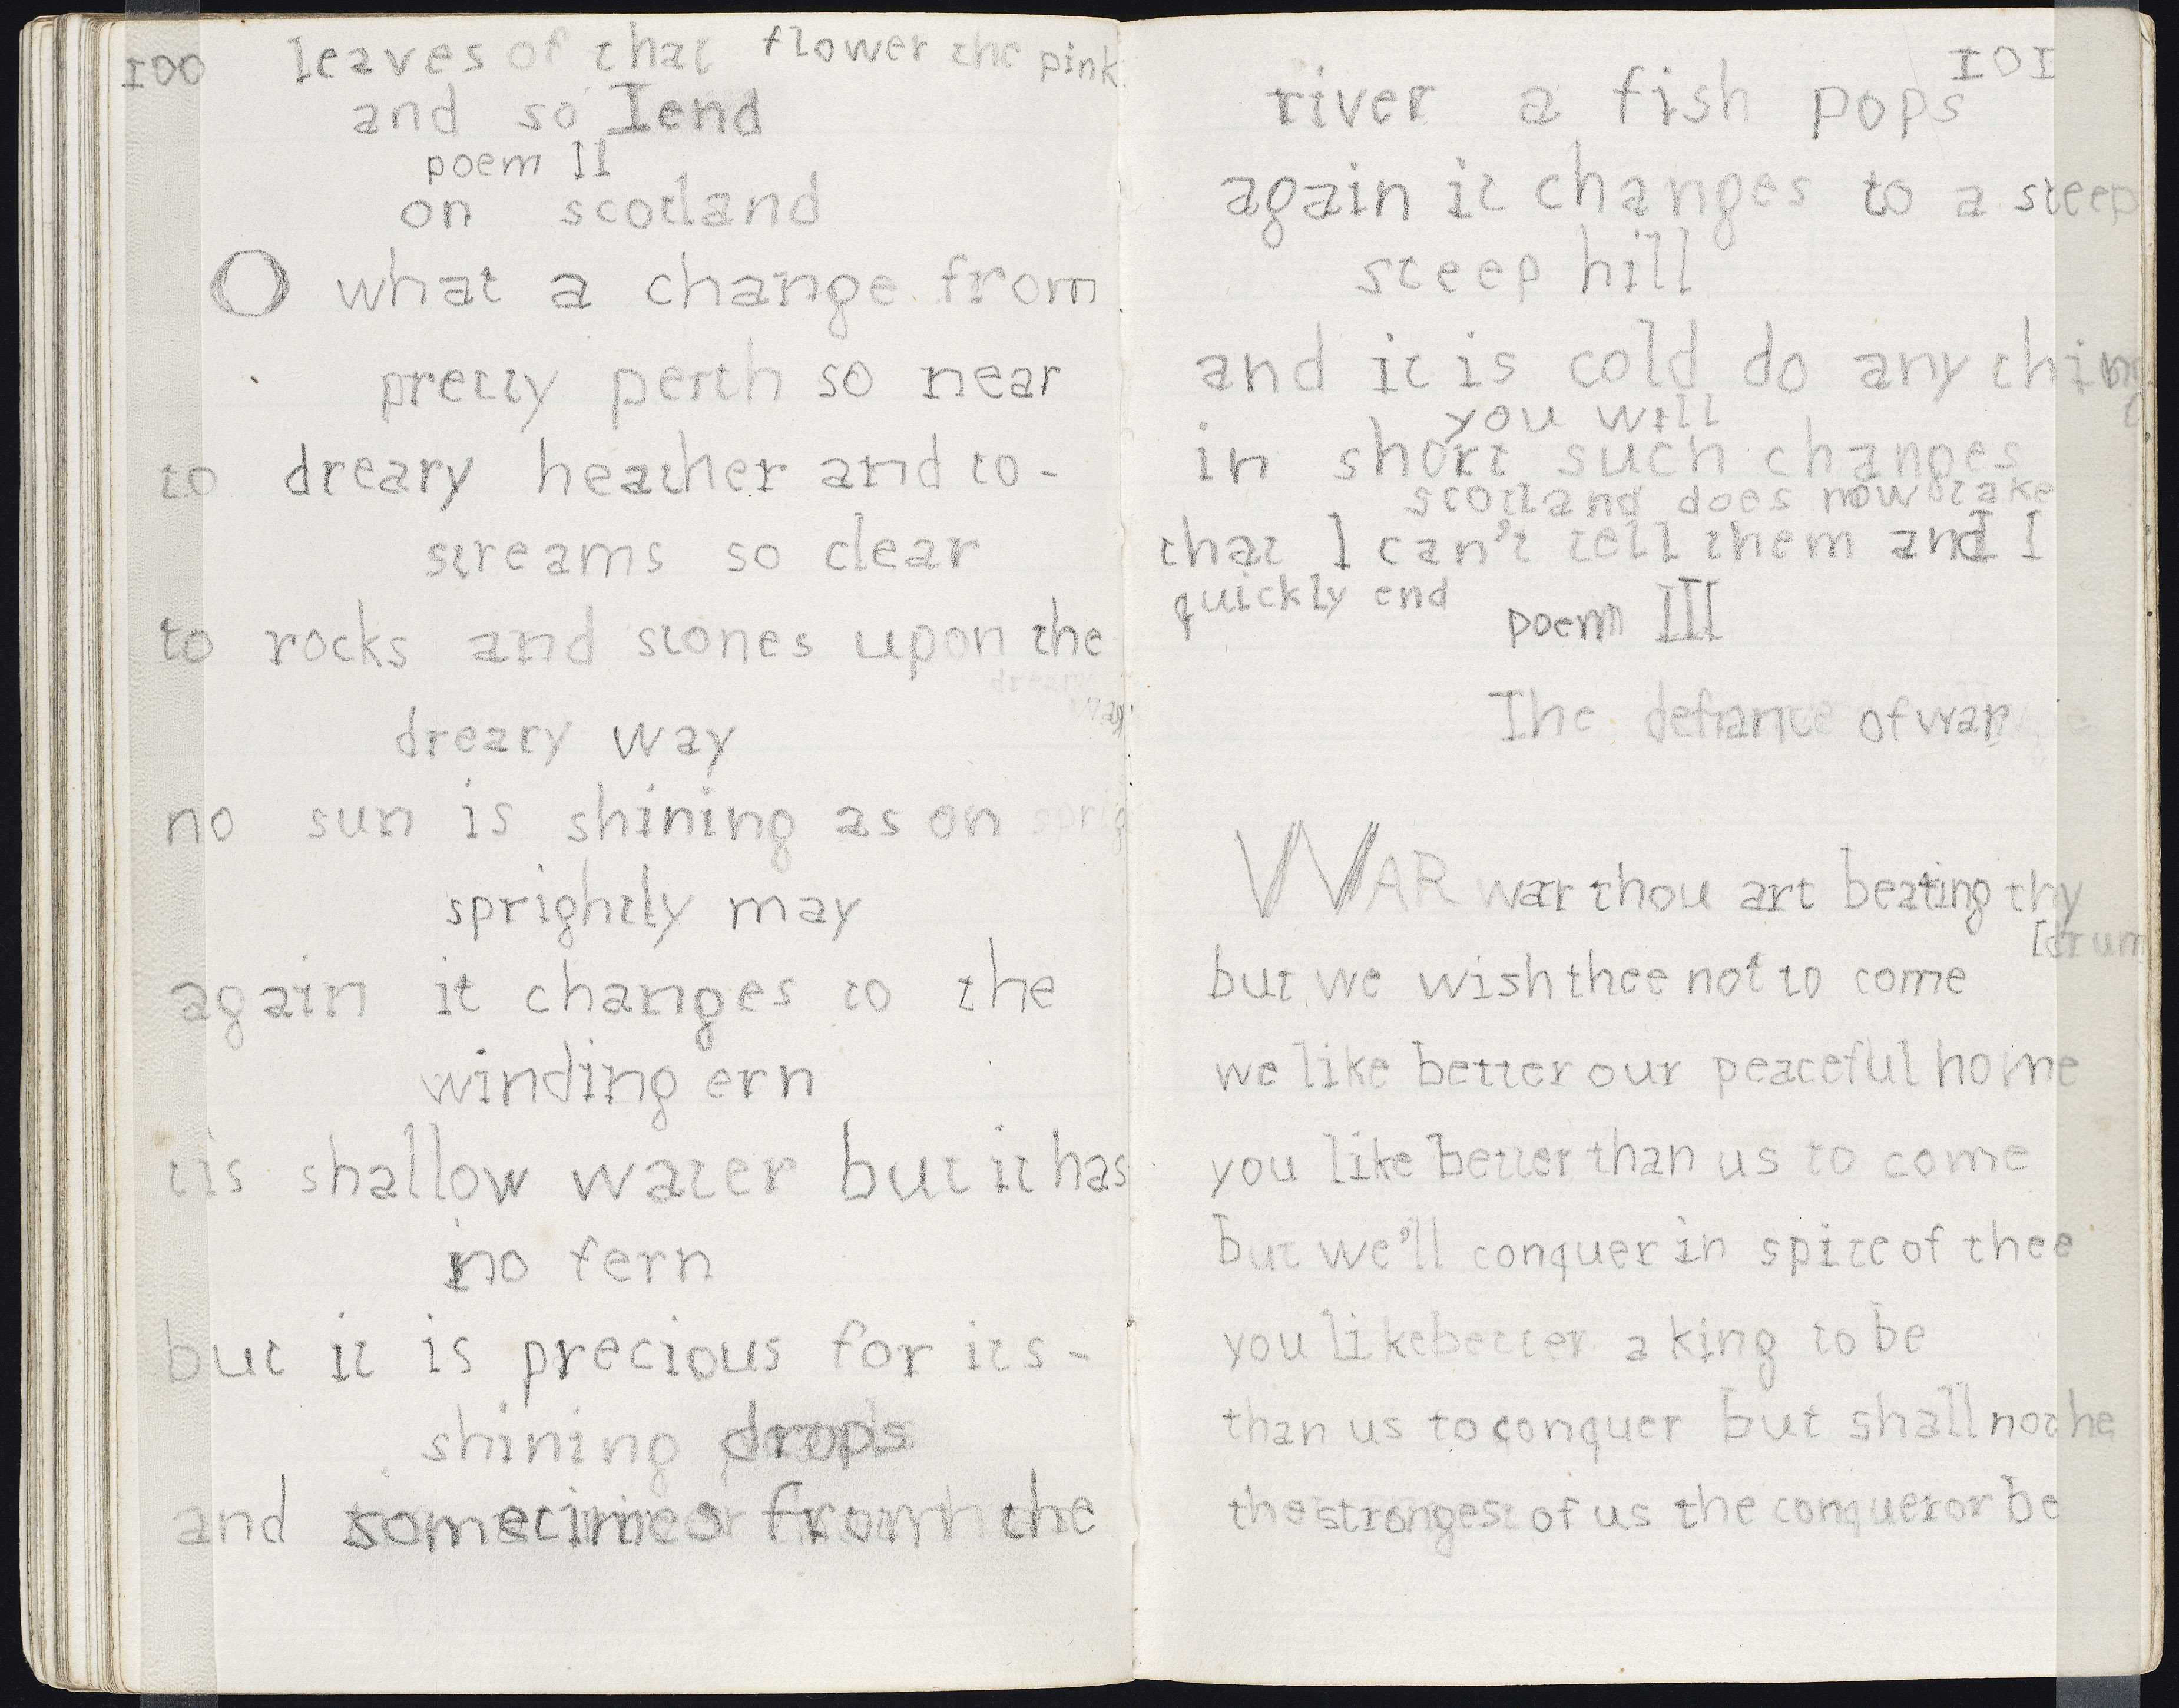 100 leaves of that flower the pink
and so I end
poem II
on scotland
O what a change from
pretty perth so near
to dreary heather and to-
streams so clear
to rocks and stones upon the
dreary way
no sun is shining as on
sprightly may
again it changes to the
winding ern
tis shallow water but it has
no fern
but it is precious for its-
shining drops
and sometimes from the
101
river a fish pops
again it changes to a steep
steep hill
and it is cold do any thing
you will
in short such changes
scotland does now take
that I can't tell them and I
quickly end
poem III
The defiance of war
WAR war thou art beating thy
[drum
but we wish thee not to come
we like better our peaceful home
you like better than us to come
but we'll conquer in spite of thee
you like better a king to be
than us to conquer but shall not he
the strongest of us the conqueror be